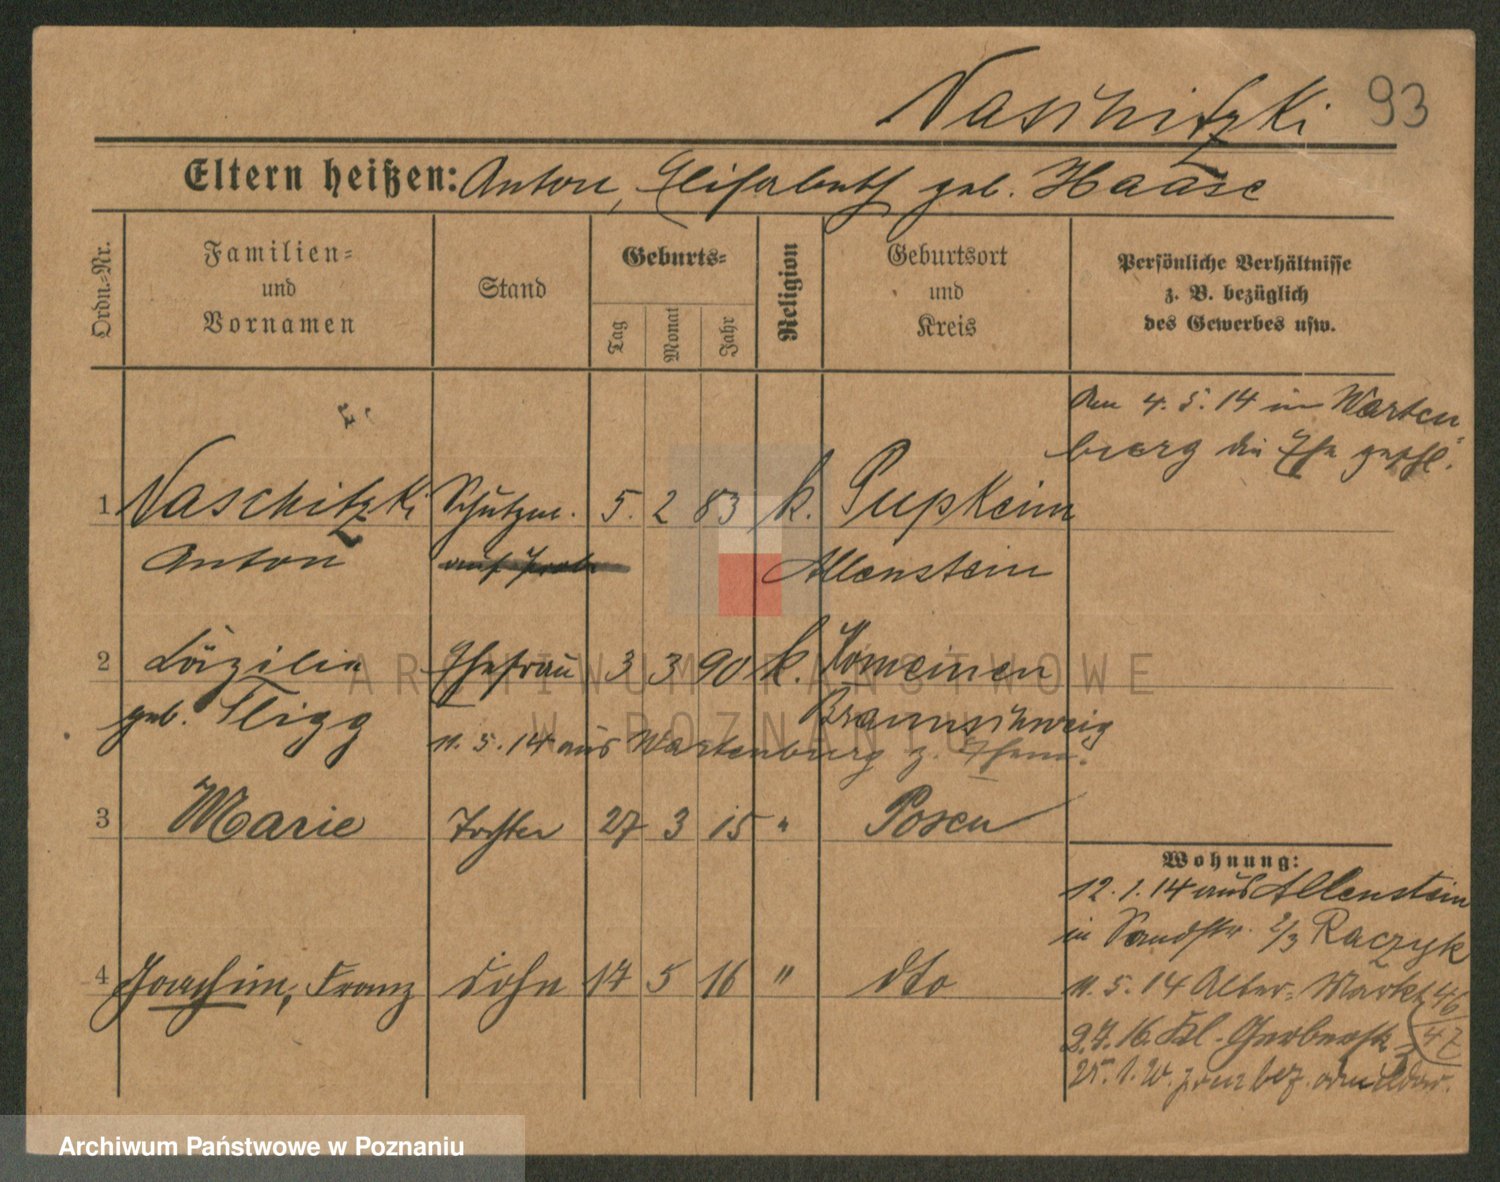 Naschitzki 93
Eltern heißen: Anton, Elisabeth geb. Haase
Ordn.-Nr.
Familien- und Vornamen
Stand
Geburts-
Tag
Monat
Jahr
Religion
Geburtsort und Kreis
Persönliche Verhältnisse
z. B. bezüglich
des Gewerbes usw.
Am 4. 5. 14 in Warten-
burg die Ehe geschl.
1 Naschitzki Schutzm. 5. 2 83 k. Pupkeim
Anton auf Probe Allenstein
2 Cäzilia Ehefrau 3 3 90 k. Komeinen
geb. Fligg Braunschweig
11. 5. 14 aus Wartenburg z. Ehem.
3 Marie Tochter 27 3 15 " Posen
Wohnung:
12. 1. 14 aus Allenstein
in Sandstr. 2/3 Raczyk
4 Joachim, Franz Sohn 17 5 16 " dto
11. 5. 14 Alter-Markt 46/47
16. Kl. Gerberstr.
ARCHIWUM PAŃSTWOWE
W POZNANIU
Archiwum Państwowe w Poznaniu